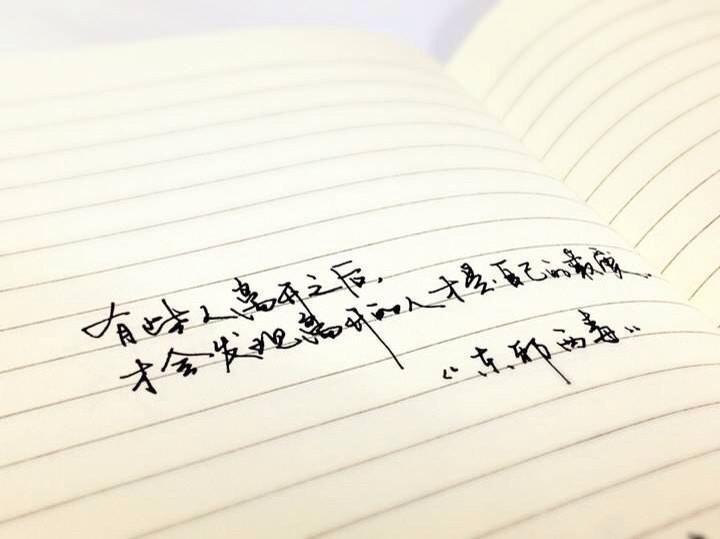 有些人离开之后，
才会发现离开的人才是自己的最爱。
《东邪西毒》